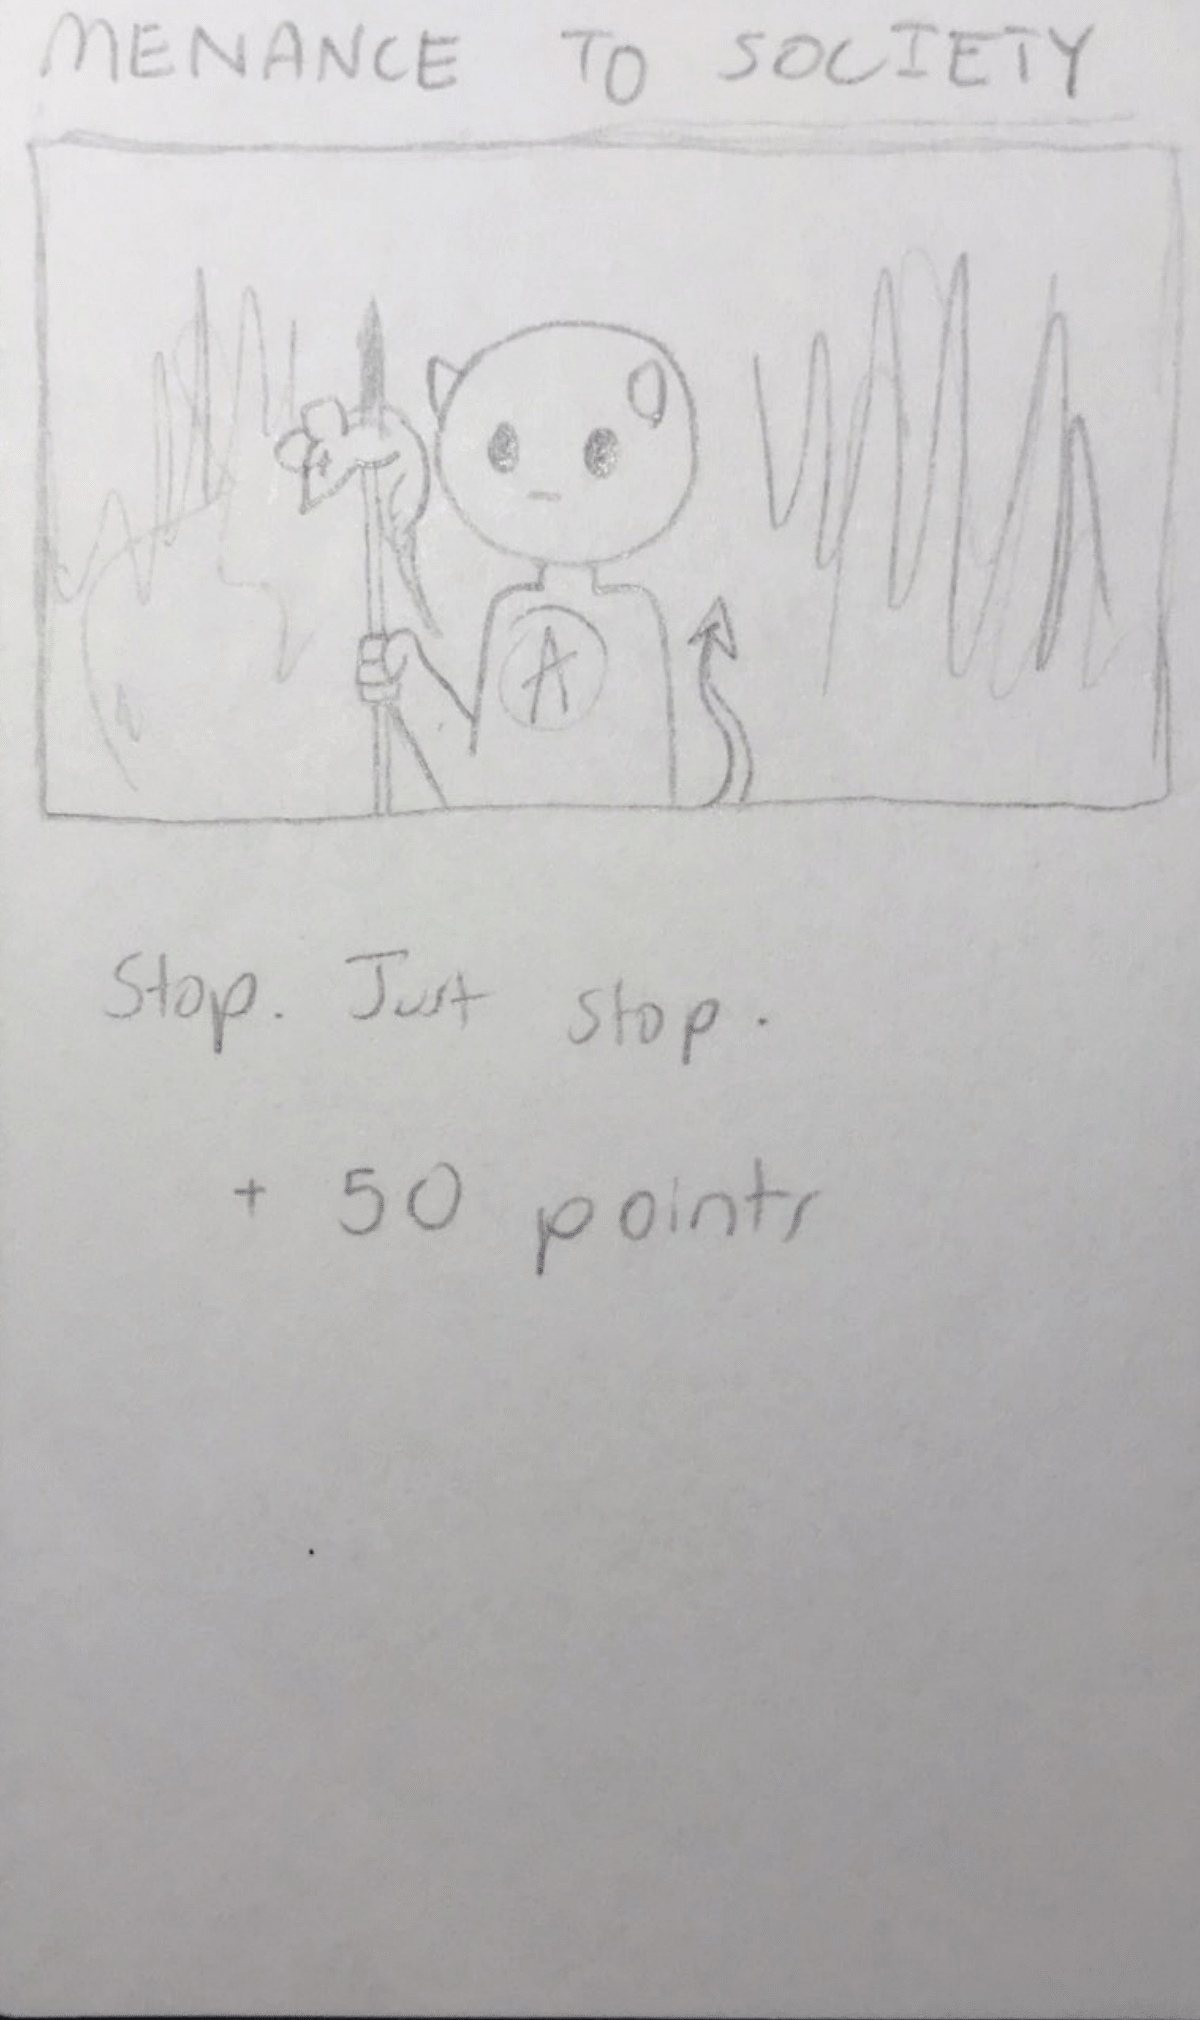 MENANCE TO SOCIETY
A
Stop. Just stop.
+ 50 points